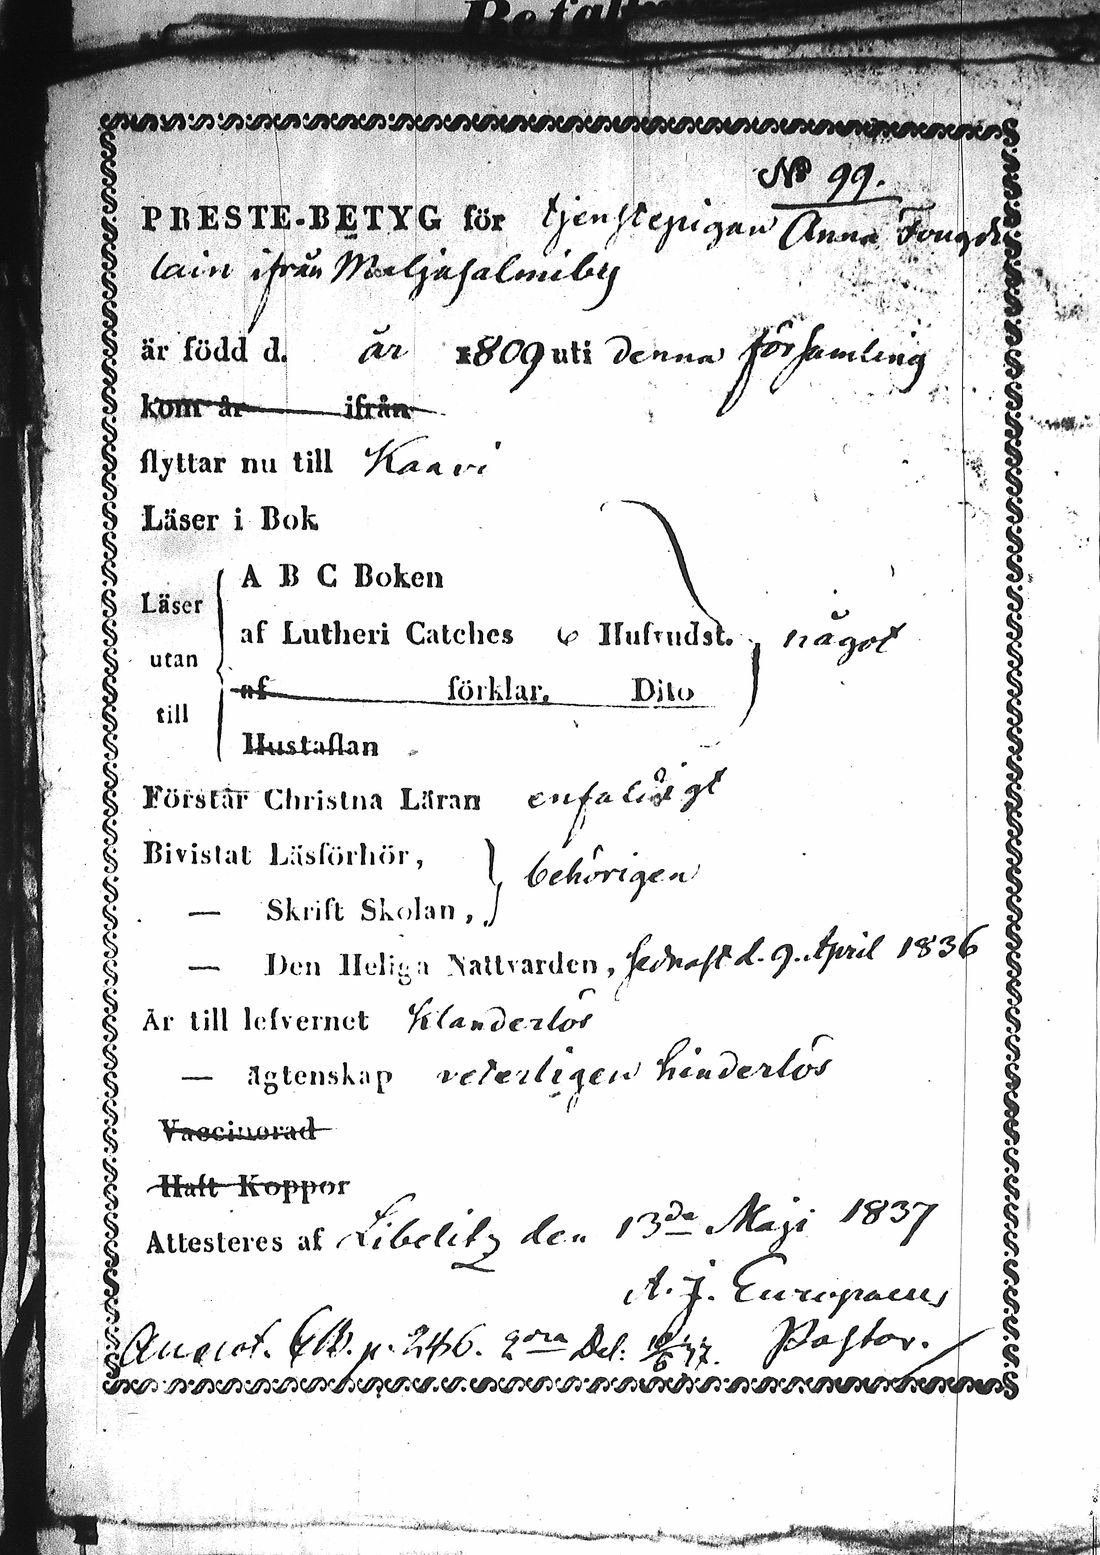 Nº 99.
PRESTE-BETYG för tjenstepigan Anna Fougde
lain ifrån Maljasalmiby
är född d. år 1809 uti denna församling
kom år ifrån
flyttar nu till Kaavi
Läser i Bok
A B C Boken
Läser
af Lutheri Catches 6 Hufvudst. något
utan
af förklar. Dito
till
Hustaflan
Förstår Christna Läran enfaldigt
Bivistat Läsförhör,
behörigen
— Skrift Skolan,
— Den Heliga Nattvarden, sednast d. 9. April 1836
Är till lefvernet Klanderlös
— ägtenskap veterligen hinderlös
Vaccinerad
Haft Koppor
Attesteres af Libelitz den 13de Maji 1837
A. J. Europaeus
Pastor.
Annot. p. 246. Del: